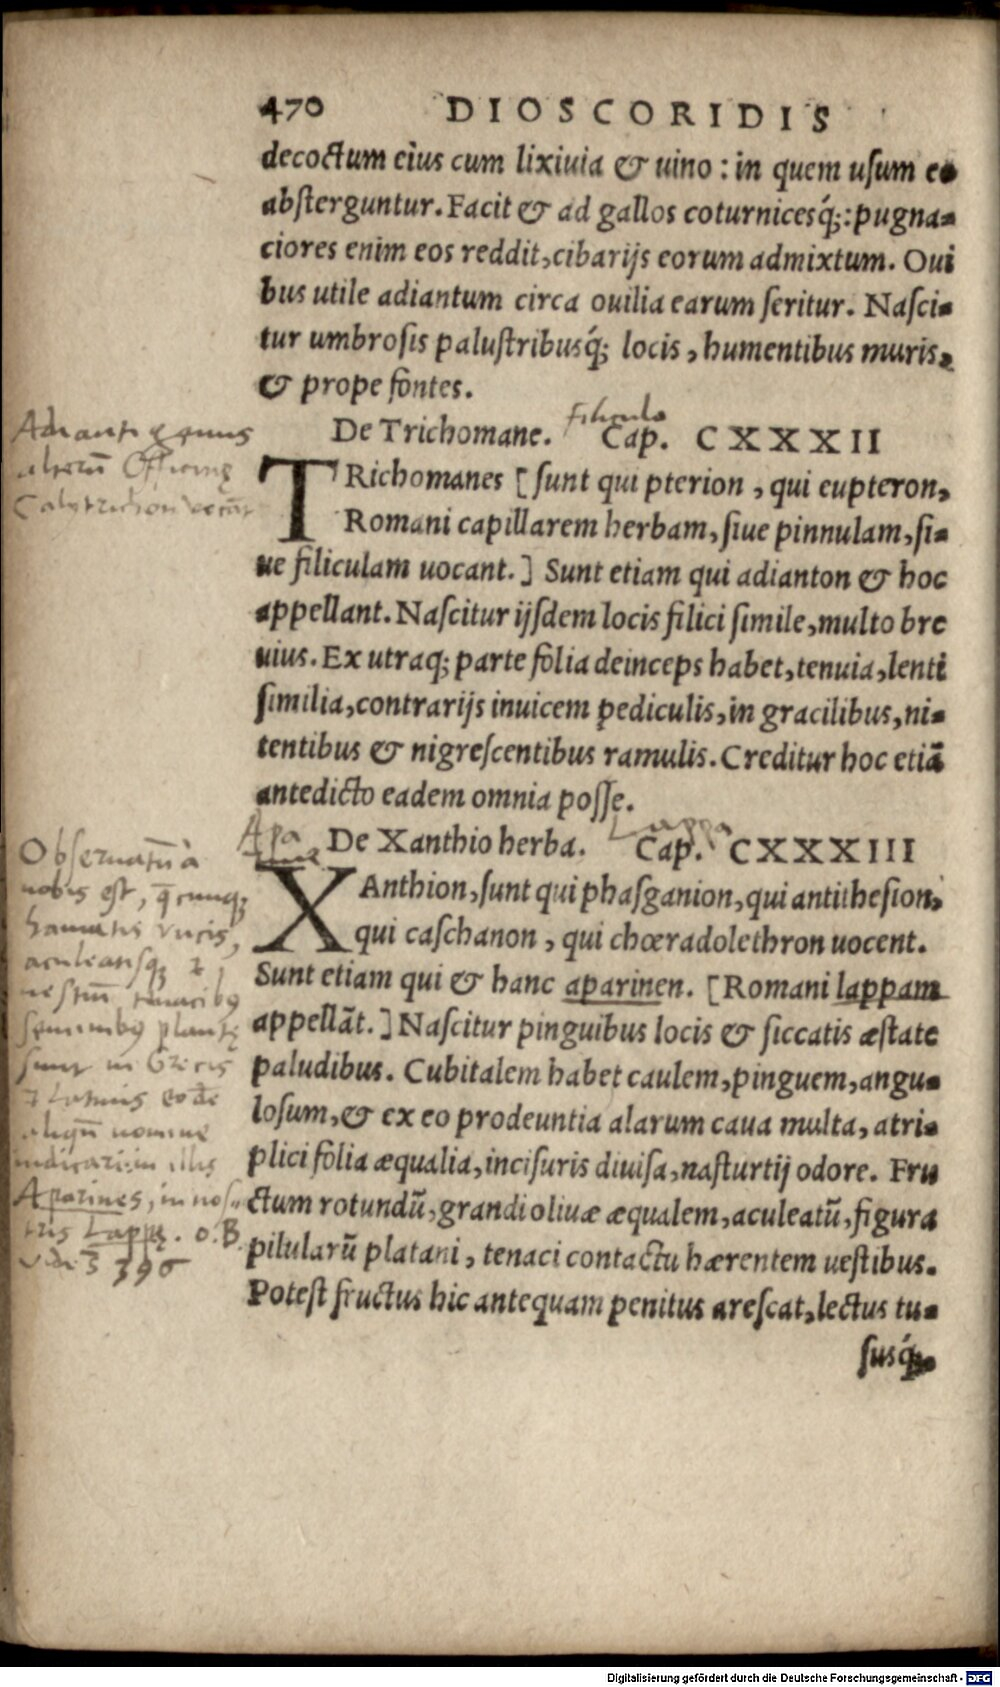 470 DIOSCORIDIS
decoctum eius cum lixiuia & uino: in quem usum eo
abſterguntur. Facit & ad gallos coturnicesq́;: pugna-
ciores enim eos reddit, cibarijs eorum admixtum. Oui
bus utile adiantum circa ouilia earum ſeritur. Naſci-
tur umbroſis paluſtribusq́; locis, humentibus muris,
& prope fontes.
filicula
De Trichomane. Cap. CXXXII
TRichomanes [ſunt qui pterion, qui eupteron,
Romani capillarem herbam, ſiue pinnulam, ſi-
ue filiculam uocant.] Sunt etiam qui adianton & hoc
appellant. Naſcitur ijſdem locis filici ſimile, multo bre
uius. Ex utraq; parte folia deinceps habet, tenuia, lenti
ſimilia, contrarijs inuicem pediculis, in gracilibus, ni-
tentibus & nigreſcentibus ramulis. Creditur hoc etiã
antedicto eadem omnia poſſe.
Adianti genus
alterũ Officinę
Lappa
De Xanthio herba. Cap. CXXXIII
XAnthion, ſunt qui phaſganion, qui antitheſion,
qui caſchanon, qui chœradolethron uocent.
Sunt etiam qui & hanc aparinen. [Romani lappam
appellãt.] Naſcitur pinguibus locis & ſiccatis æſtate
paludibus. Cubitalem habet caulem, pinguem, angu-
loſum, & ex eo prodeuntia alarum caua multa, atri-
plici folia æqualia, inciſuris diuiſa, naſturtij odore. Fru
ctum rotundũ, grandi oliuæ æqualem, aculeatũ, figura
pilularũ platani, tenaci contactu hærentem ueſtibus.
Poteſt fructus hic antequam penitus areſcat, lectus tu-
ſusq́;
Obseruatũ à
nobis est,
hamatis
aculeatisq;
tenacibus
seminibus plantę
sunt in Grecis
& Latinis eodẽ
aliquo nomine
indicari: in illis
Aparines, in nos-
tris Lappę. o. B.
vide 396